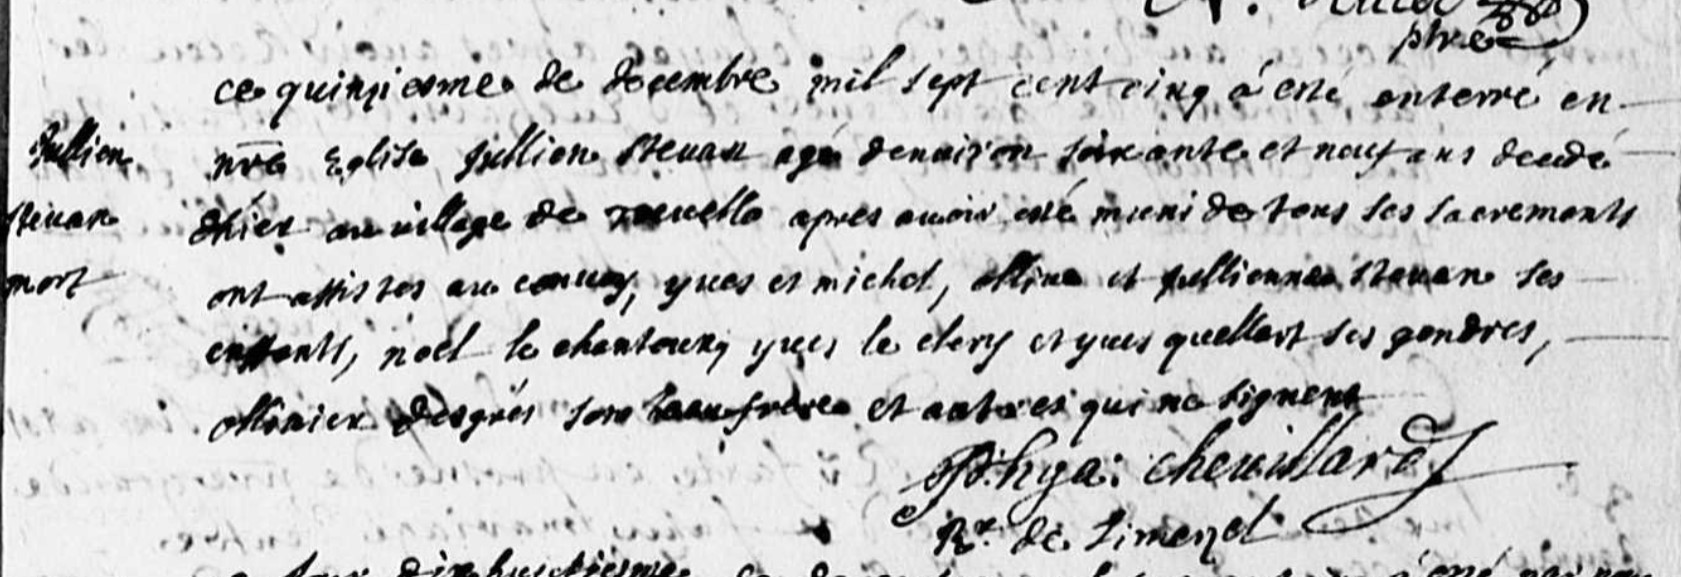 ptre
ce quinziesme de decembre mil sept cent cinq á esté enterré en
Jullien
nre Eglise Jullien Steuan agé denuiron soixante et neuf ans decedé
Steuan
dhier au village de apres auoir esté muni de tous ses sacrements
mort
ont assistes au conuoy, yues et michel, oliue et Jullienne Steuan ses
enffants, noel le chanteux, yues le clery et yues quellart ses gendres,
ollinier desgrés son beau frere et autres qui ne signent
Phya: cheuillard
Rr. de Limerzel